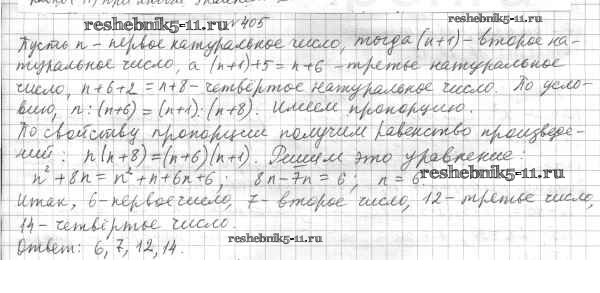 reshebnik5-11.ru
№405
Пусть n - первое натуральное число, тогда (n+1) - второе на-
туральное число, а (n+1)+5 = n+6 - третье натуральное
число, n+6+2 = n+8 - четвёртое натуральное число. По усло-
вию, n:(n+6) = (n+1):(n+8). Имеем пропорцию.
По свойству пропорции получим равенство произведе-
ний: n(n+8)=(n+6)(n+1). Решаем это уравнение:
n²+8n = n²+n+6n+6; 8n-7n = 6; n = 6.
reshebnik5-11.ru
Итак, 6-первое число, 7 - второе число, 12 - третье число,
14 - четвёртое число.
reshebnik5-11.ru
Ответ: 6, 7, 12, 14.